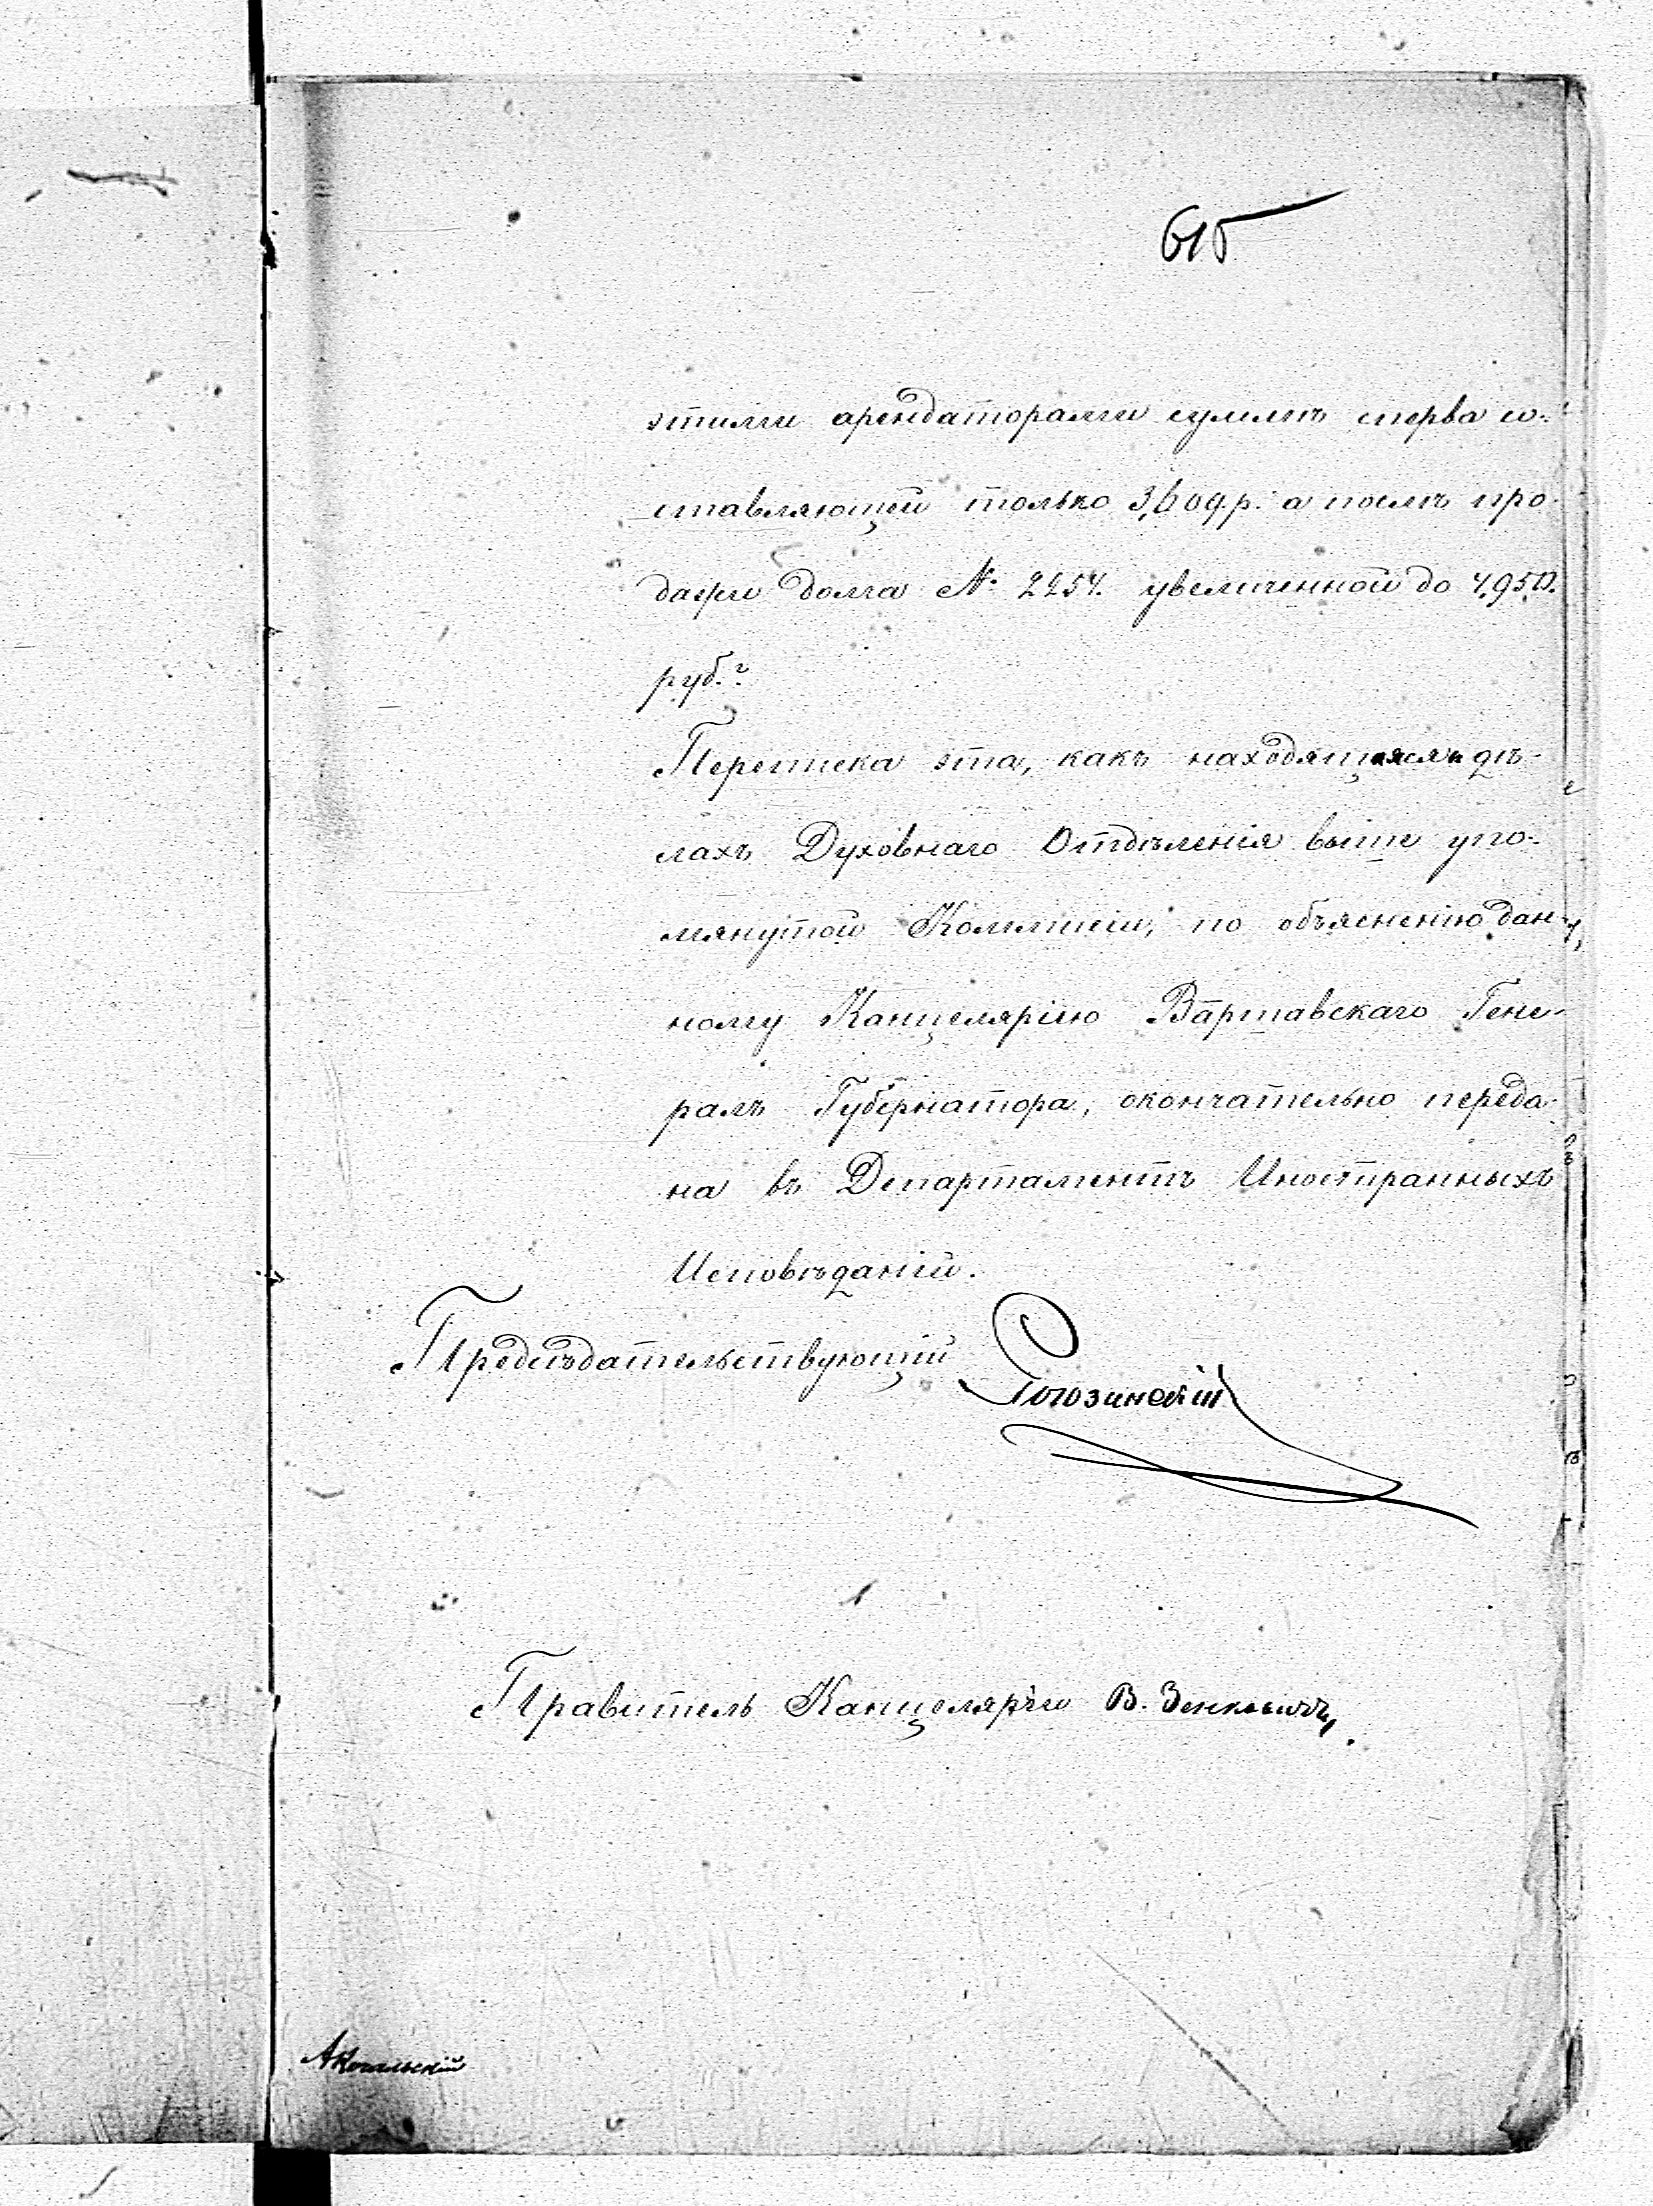 615
этими арендаторами суммъ сперва со-
ставляющей только 3,609 р. а послѣ про-
дажи долга № 2254. увеличенной до 4,950.
руб.
Переписка эта, какъ находящаяся въ дѣ-
лахъ Духовнаго Отдѣленія выше упо-
мянутой Коммисіи, по объясненію дан-
ному Канцеляріею Варшавскаго Гене-
ралъ Губернатора, окончательно переда-
на въ Департаментъ Иностранныхъ
Исповѣданій.
Предсѣдательствующій Рогозинскій
Правитель Канцеляріи В. Зенкевичъ.